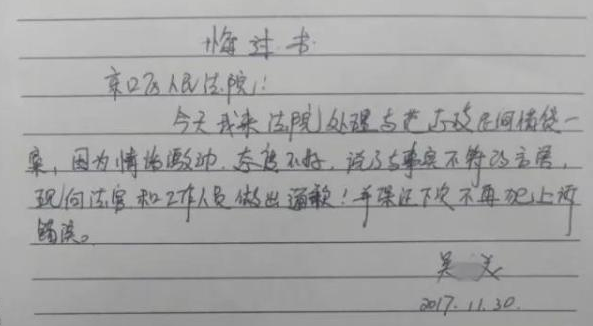 悔过书
京口区人民法院:
今天我来法院处理与范志政民间借贷一
案,因为情绪激动,态度不好,说了与事实不符的言语,
现向法官和工作人员做出道歉!并保证下次不再犯上诉
错误。
吴 美
2017.11.30.